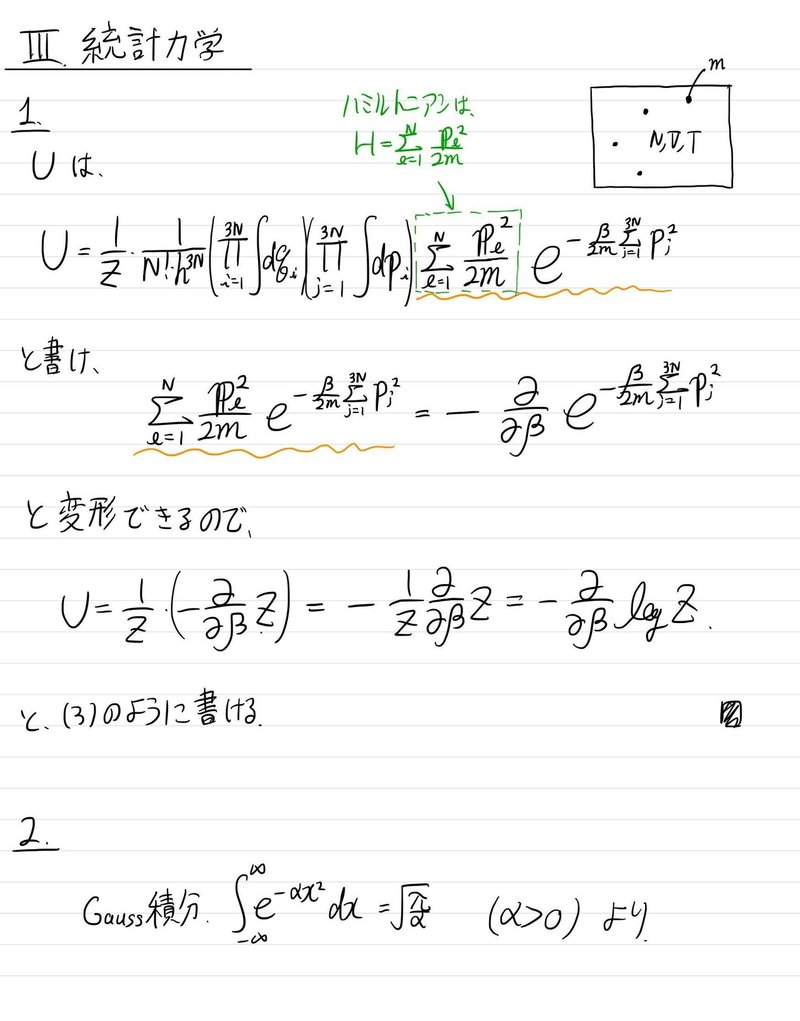 III. 統計力学
1.
Uは、
ハミルトニアンは、
H = Σ_{ℓ=1}^{N} ℙ_ℓ^2/2m
m
N, V, T
U = 1/Z · 1/(N! · h^{3N}) (∏_{i=1}^{3N} ∫dq_i)(∏_{j=1}^{3N} ∫dp_j) Σ_{ℓ=1}^{N} ℙ_ℓ^2/2m e^{-β/2m Σ_{j=1}^{3N} p_j^2}
と書け、
Σ_{ℓ=1}^{N} ℙ_ℓ^2/2m e^{-β/2m Σ_{j=1}^{3N} p_j^2} = - ∂/∂β e^{-β/2m Σ_{j=1}^{3N} p_j^2}
と変形できるので、
U = 1/Z · (-∂/∂β Z) = - 1/Z ∂/∂β Z = - ∂/∂β log Z.
と、(3)のように書ける.
2.
Gauss積分. ∫_{-∞}^{∞} e^{-αx^2} dx = √(π/α) (α>0) より